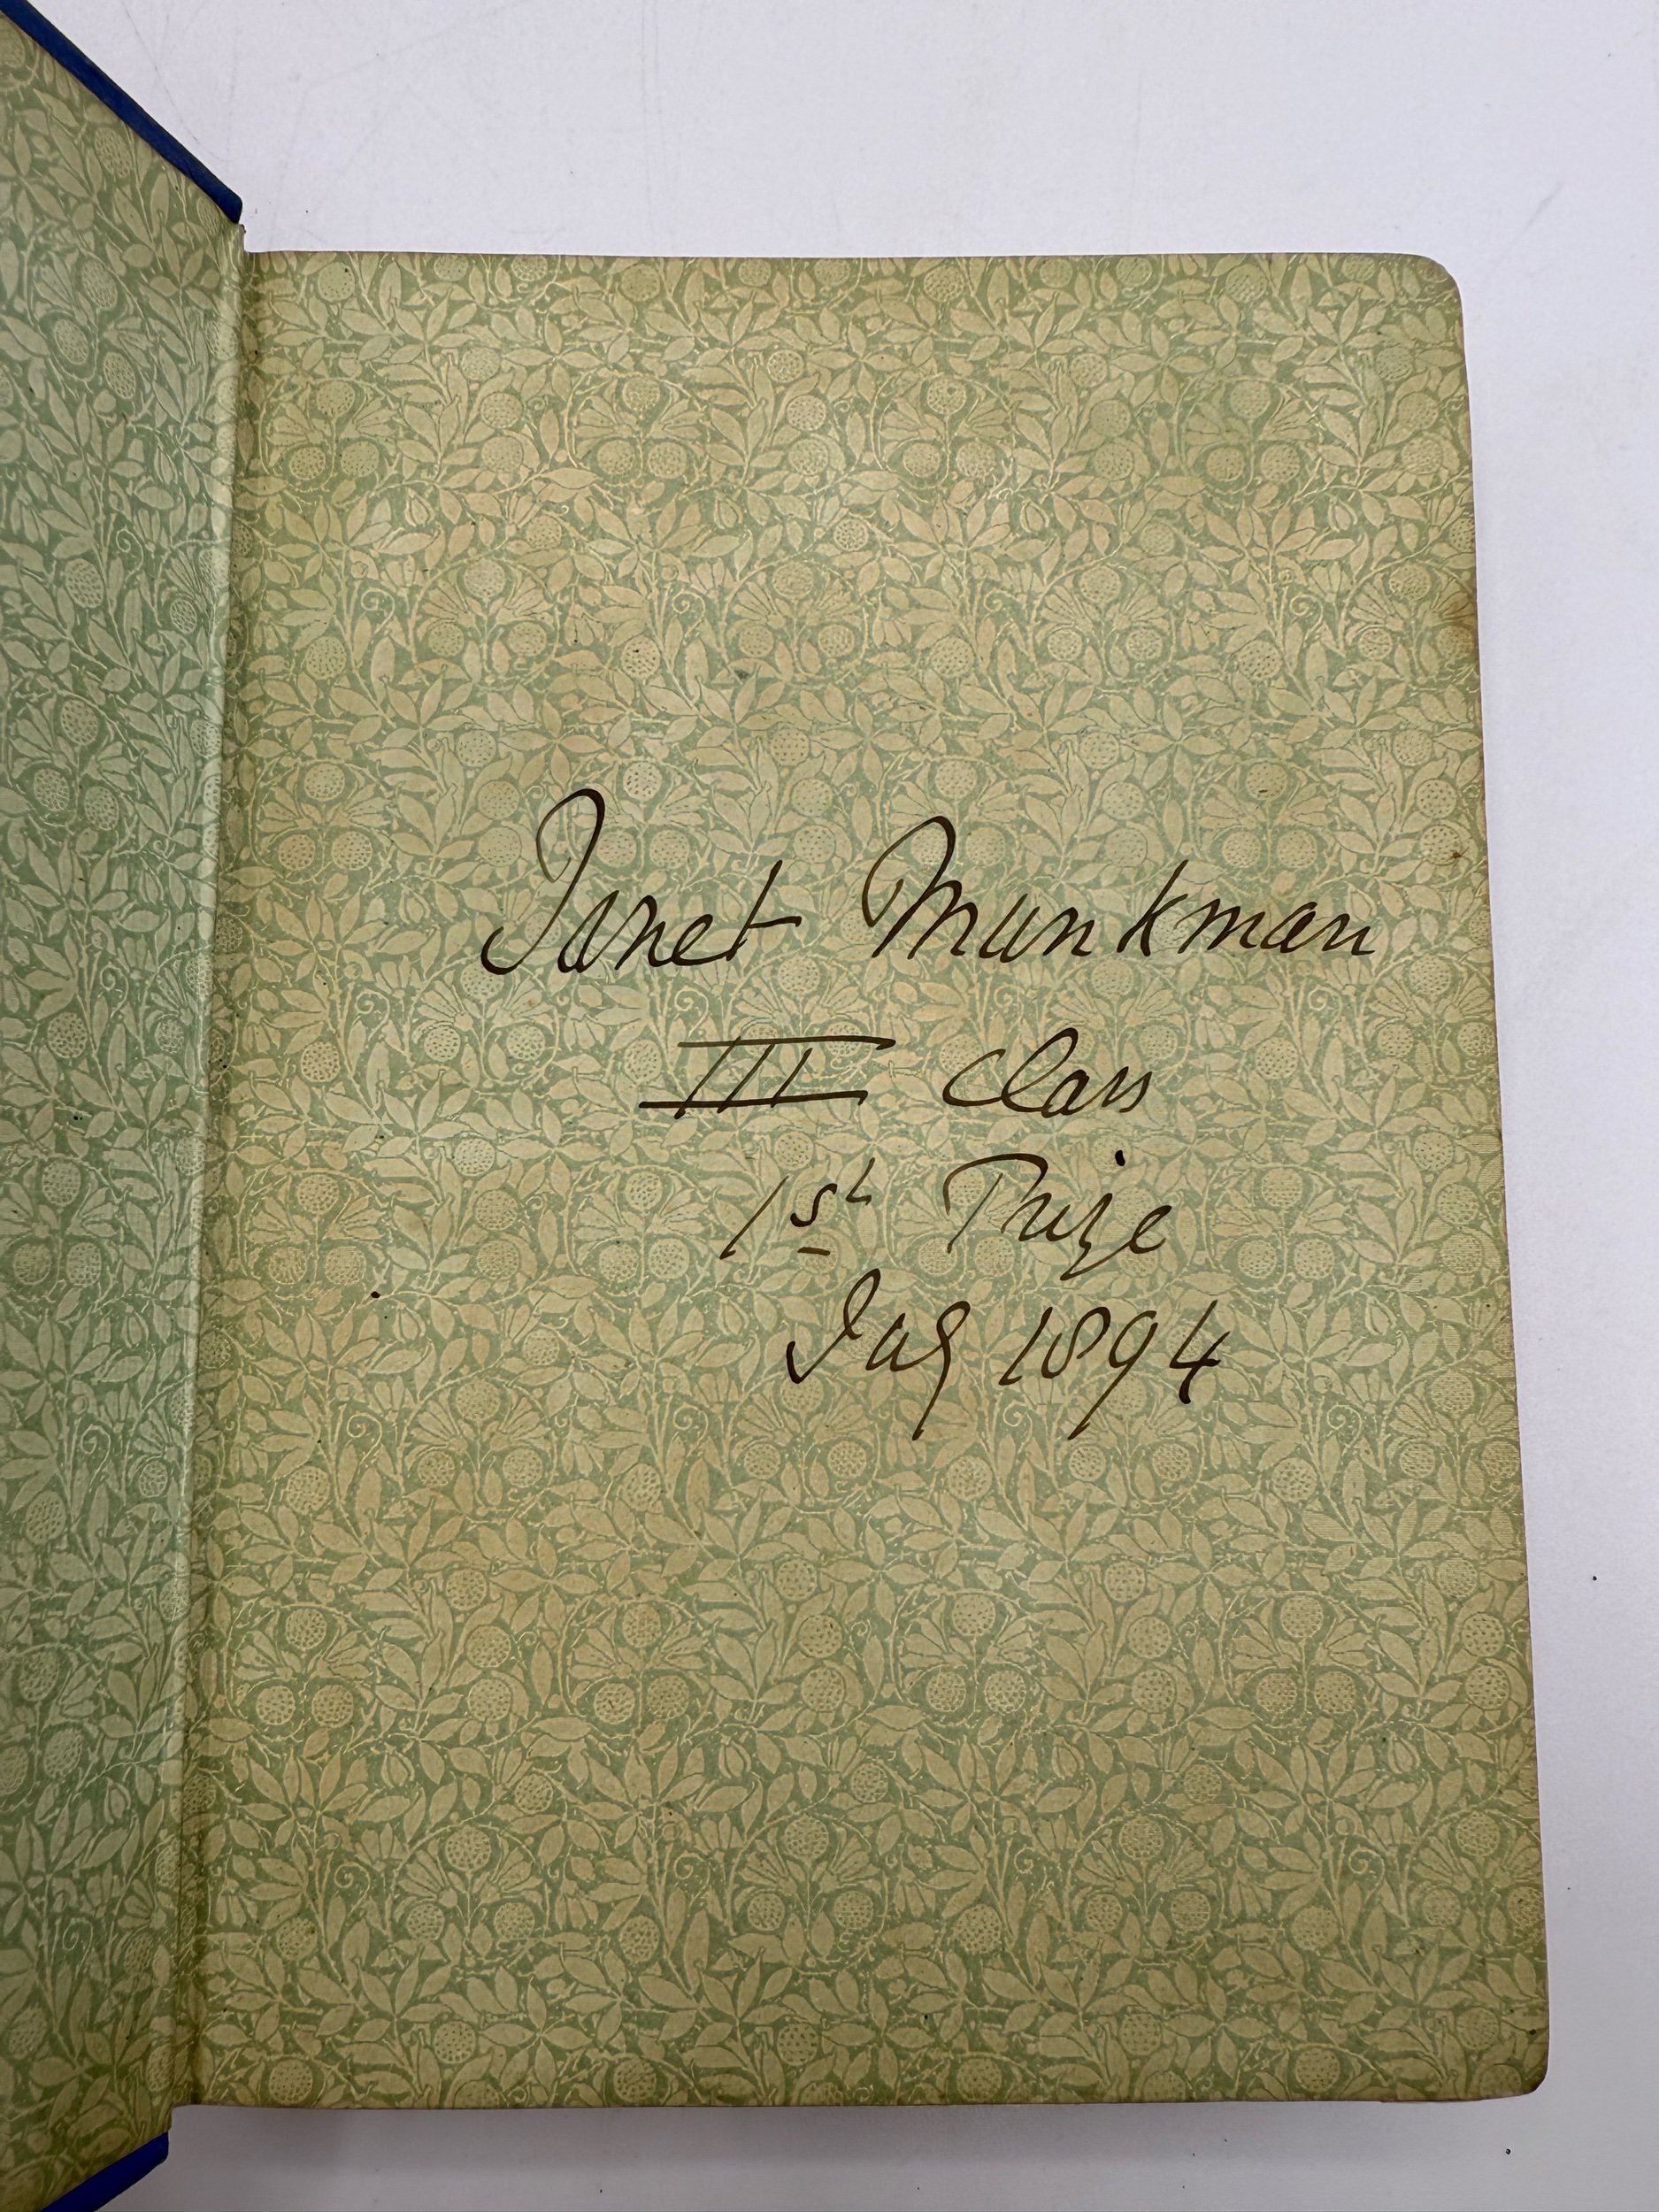 Janet Munkman
III Class
1st Prize
July 1894